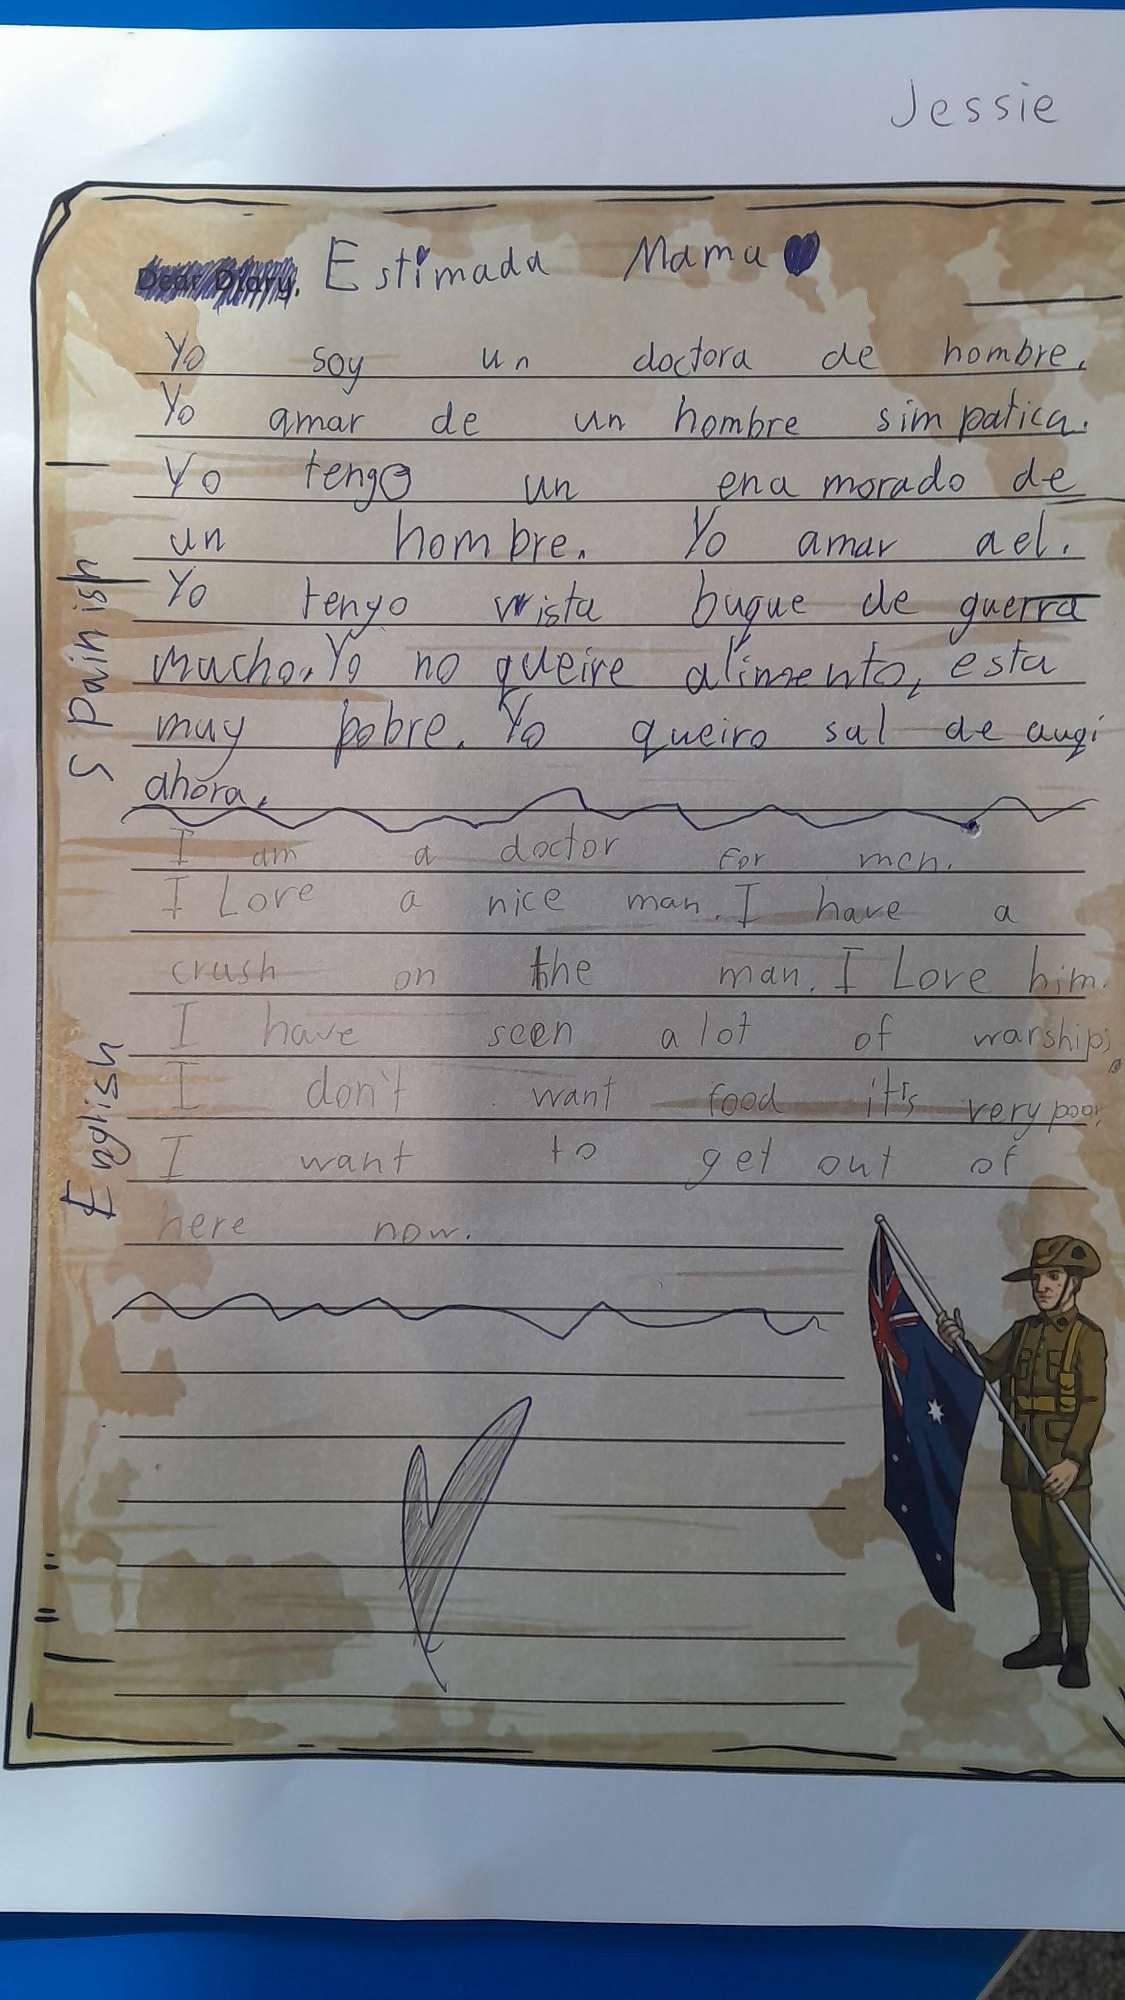 Jessie
Dear Diary, Estimada Mama
Yo soy un doctora de hombre.
Yo amar de un hombre simpatica.
Yo tengo un enamorado de
un hombre. Yo amar a el.
Yo tengo vista buque de guerra
mucho. Yo no queire alimento, esta
muy pobre. Yo queiro sal de auqi
ahora.
Spainish
I am a doctor For men.
I Love a nice man. I have a
crush on the man. I Love him.
I have seen a lot of warships.
I don't want food it's very poor.
I want to get out of
here now.
English